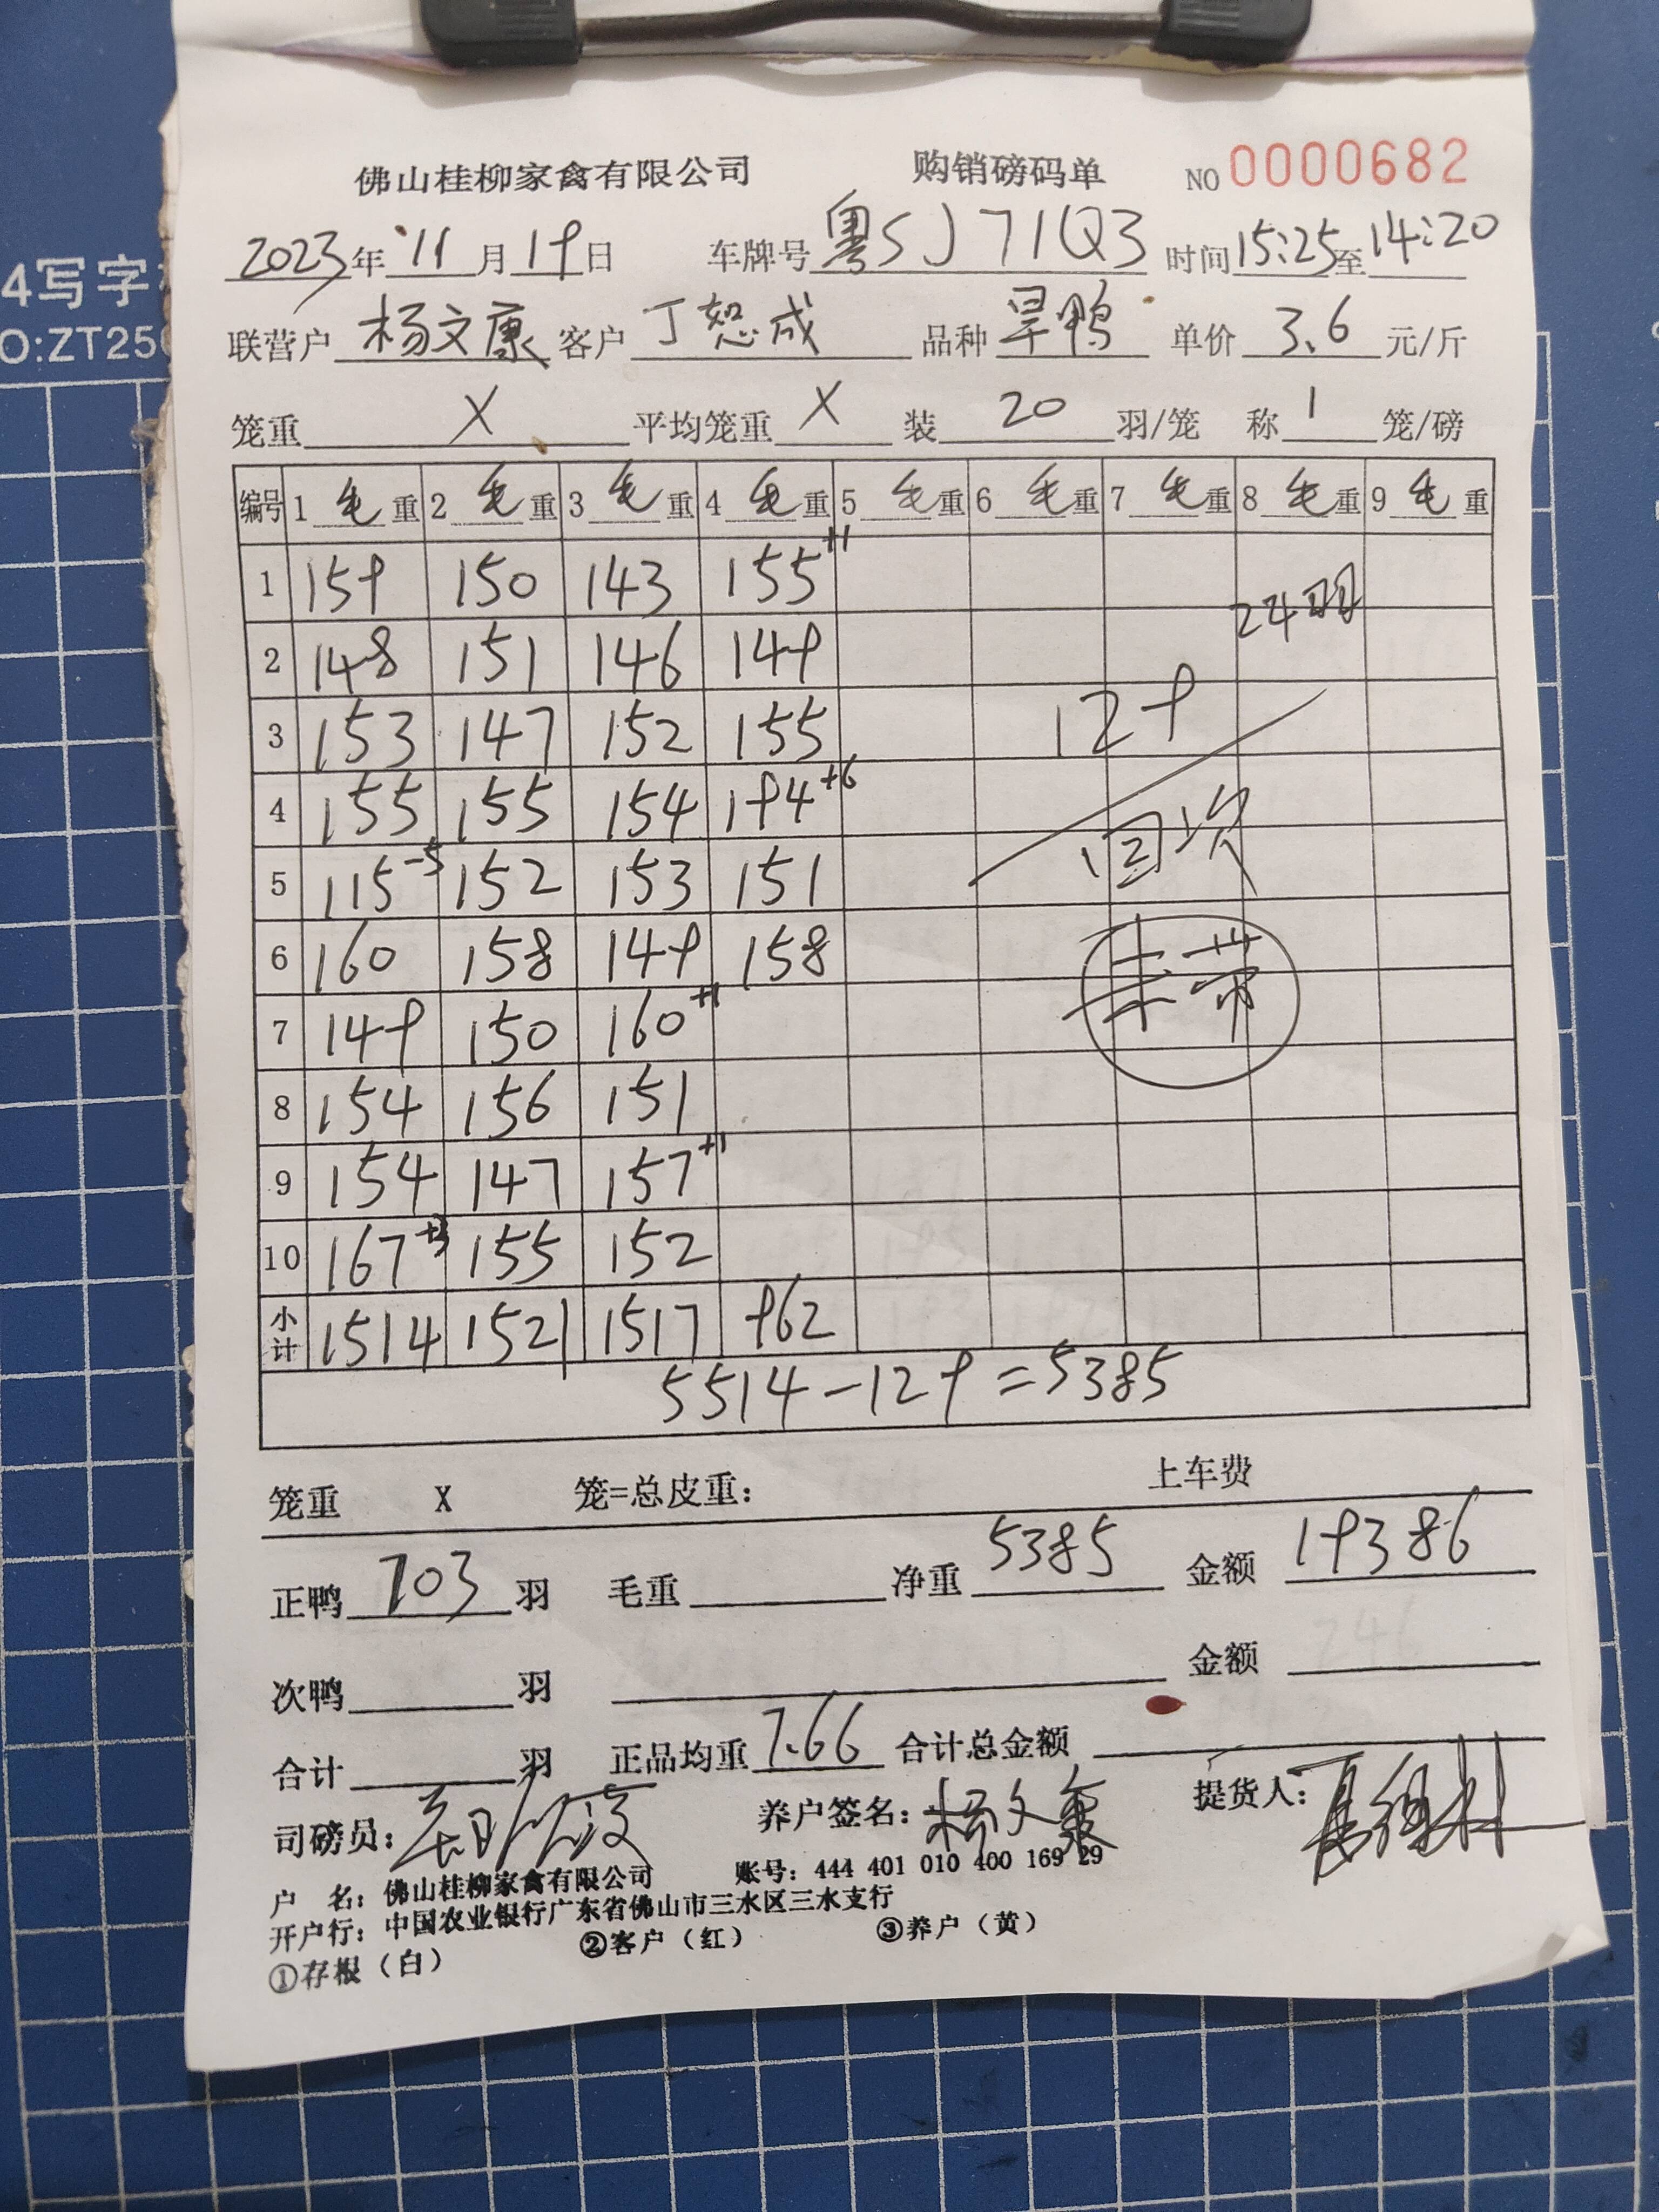 4写字
O:ZT25
佛山桂柳家禽有限公司 购销磅码单 NO 0000682
2023年 11月19日 车牌号 粤SJ71Q3 时间 15:25至14:20
联营户 杨文康 客户 丁恕成 品种 旱鸭 单价 3.6 元/斤
笼重 X 平均笼重 X 装 20 羽/笼 称 1 笼/磅
编号 1毛重 2毛重 3毛重 4毛重 5毛重 6毛重 7毛重 8毛重 9毛重
1 159 150 143 155+1
24羽
2 148 151 146 149
3 153 147 152 155 129
4 155 155 154 194+6
回次
5 115-5 152 153 151
6 160 158 149 158
7 149 150 160+1
8 154 156 151
9 154 147 157+1
10 167+3 155 152
小计 1514 1521 1517 962
5514-129=5385
笼重 X 笼=总皮重: 上车费
正鸭 703 羽 毛重 净重 5385 金额 19386
次鸭 羽 金额
合计 羽 正品均重 7.66 合计总金额
司磅员: 养户签名: 杨文康 提货人:
户 名: 佛山桂柳家禽有限公司 账号: 444 401 010 400 169 29
开户行: 中国农业银行广东省佛山市三水区三水支行
①存根（白） ②客户（红） ③养户（黄）